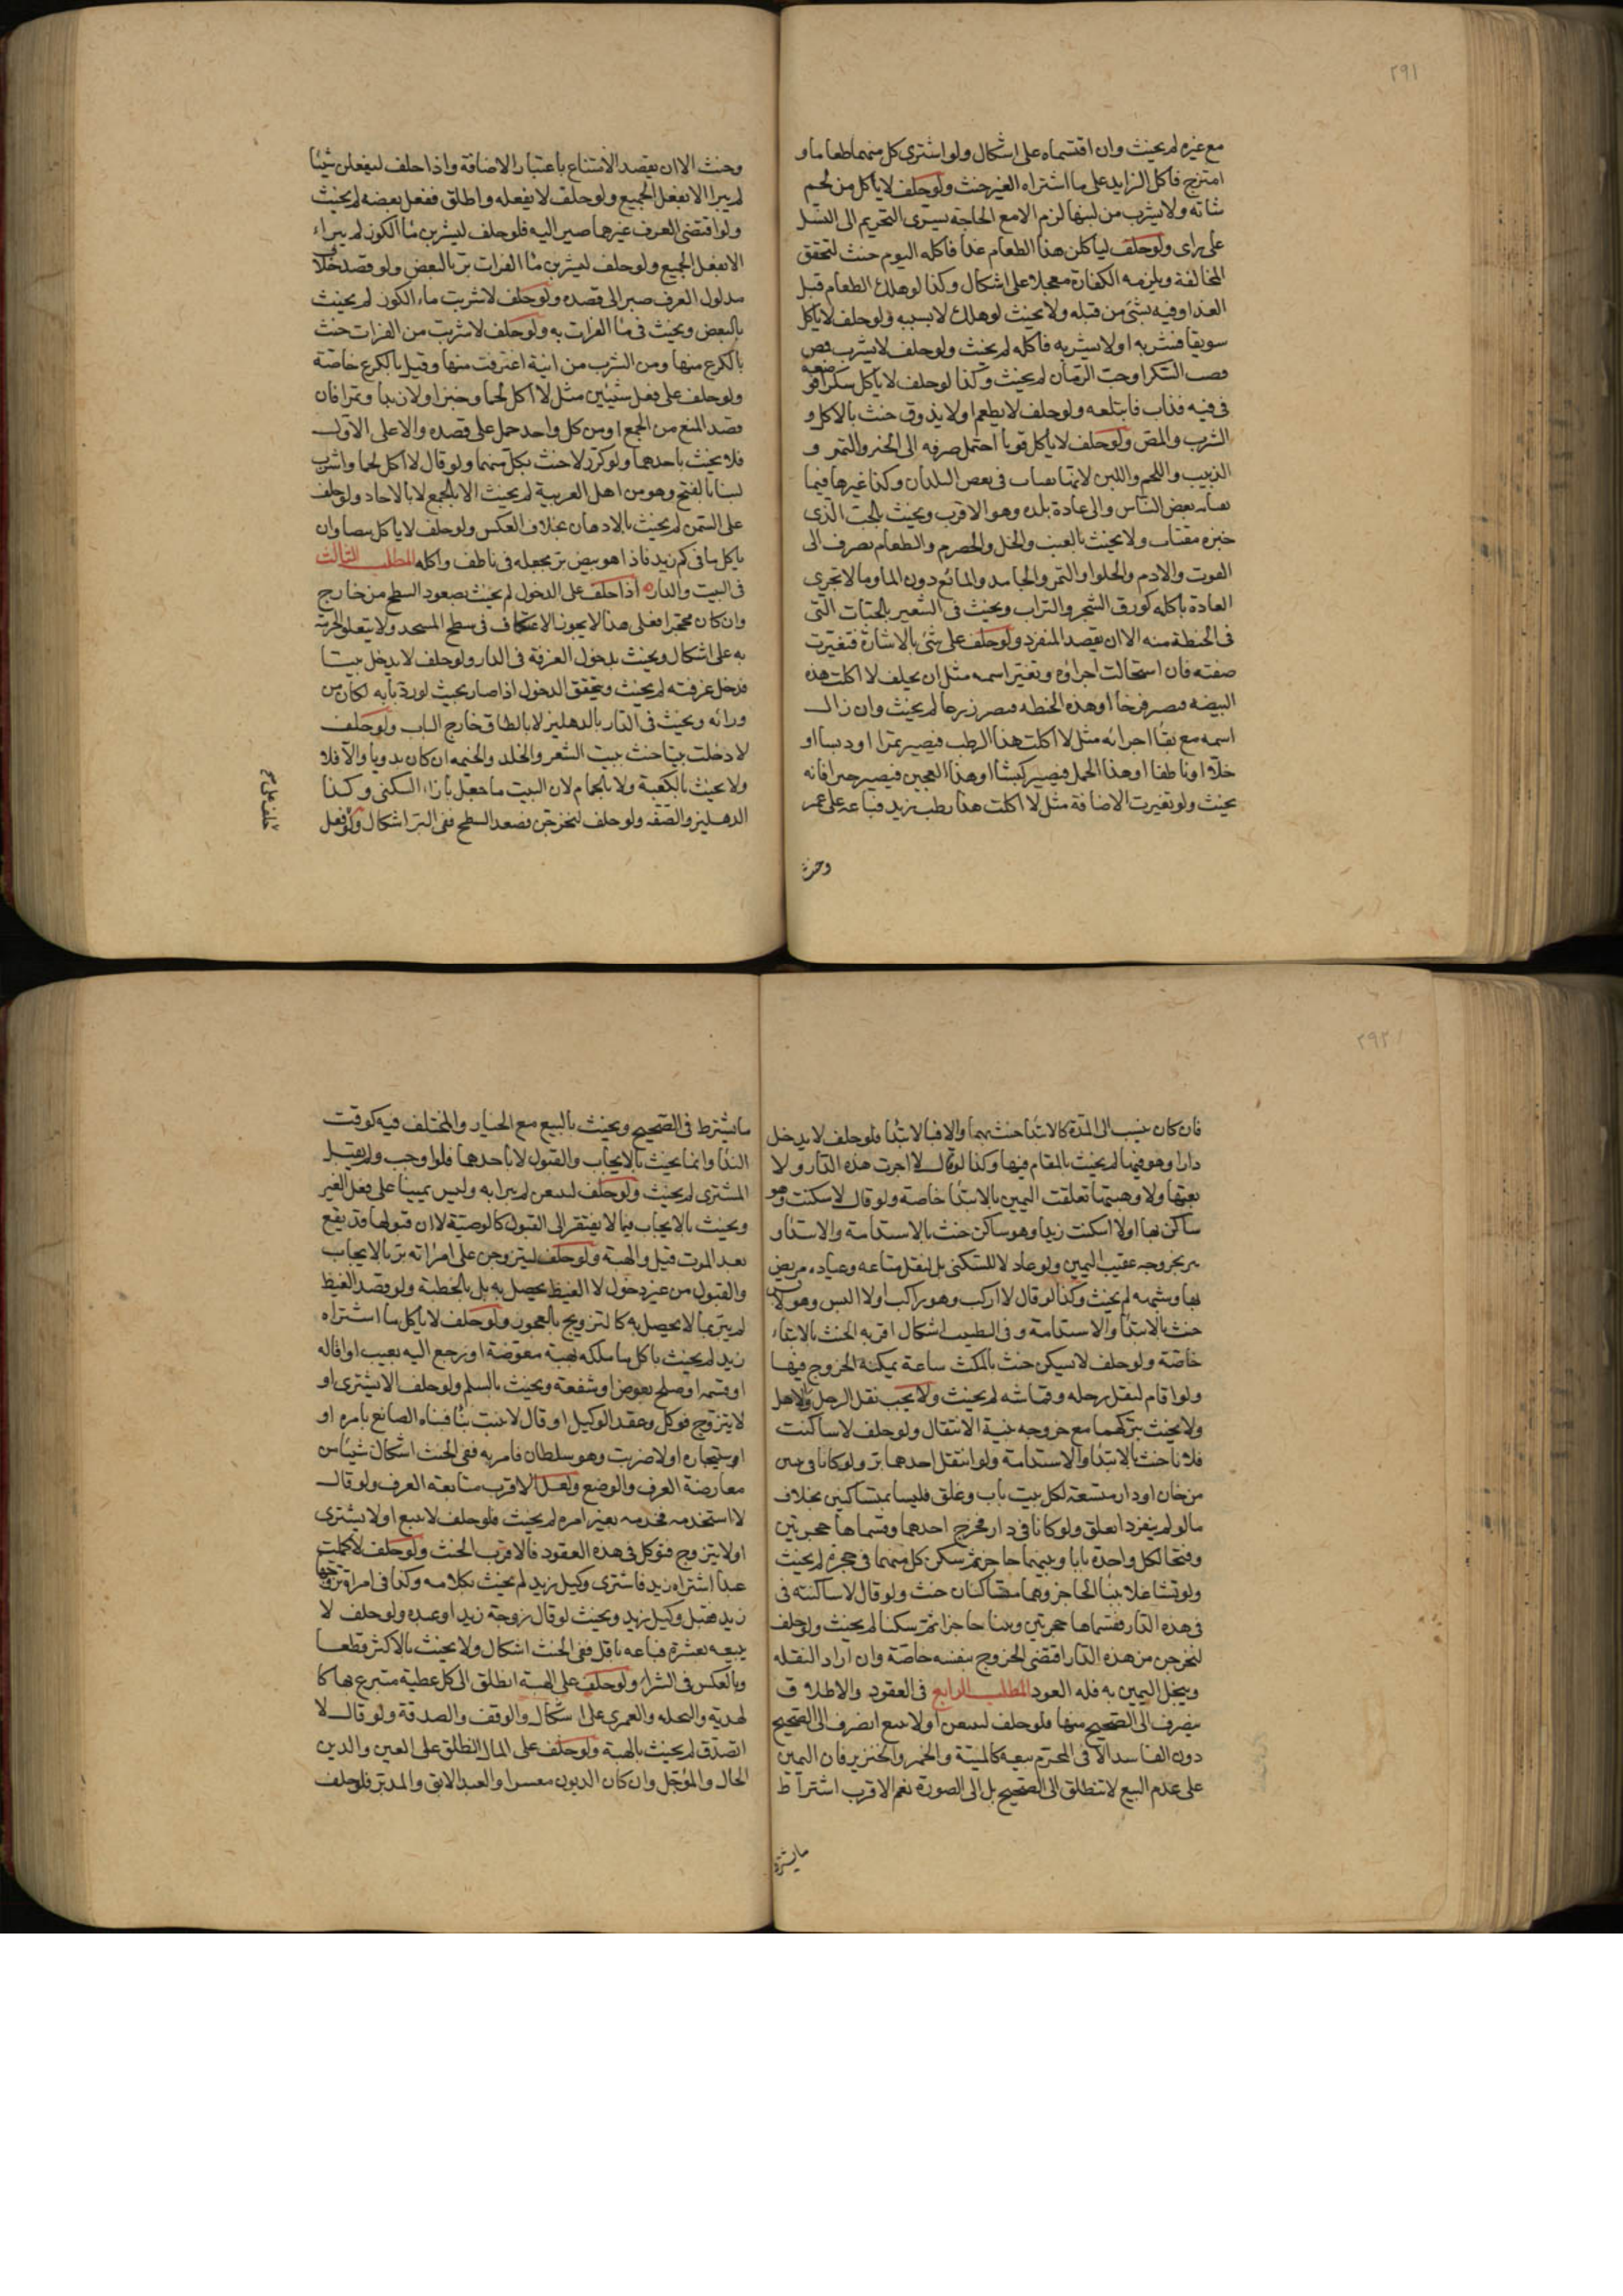 ٢٩١
مع غيره لم يحنث وان اقتسماه على اشكال ولو اشترى كل منهما طعاما و
امتزج فاكل الزايد على ما اشتراه الغير حنث ولو حلف لا ياكل من لحم
شاته ولا يشرب من لبنها لزم الا مع الحاجة يسرى التحريم الى النسل
على راى ولو حلف لياكلن هذا الطعام غدا فاكله اليوم حنث لتحقق
المخالفة ويلزمه الكفارة معجلا على اشكال وكذا لو هلك الطعام قبل
الغد او فيه بشئ من قبله ولا يحنث لو هلك لا بسببه ولو حلف لا ياكل
سويقا فشربه او لا يشربه فاكله لم يحنث ولو حلف لا يشرب فمص
قصب السكر او حب الرمان لم يحنث وكذا لو حلف لا ياكل سكرا فوضعه
فى فيه فذاب فابتلعه ولو حلف لا يطعم او لا يذوق حنث بالاكل و
الشرب والمص ولو حلف لا ياكل قوتا احتمل صرفه الى الخبز والتمر و
الزبيب واللحم واللبن لانها تقتات فى بعض البلدان وكذا غيرها فيما
يقتاته بعض الناس والى عادة بلده وهو الاقرب ويحنث بالحب الذى
خبزه مقتات ولا يحنث بالعنب والخل والحصرم والطعام يصرف الى
القوت والادم والحلوا والتمر والجامد والمائع دون الما وما لا تجرى
العادة باكله كورق الشجر والتراب ويحنث فى الشعير بالحبات التى
فى الحنطة منه الا ان يقصد المنفرد ولو حلف على شئ بالاشارة فتغيرت
صفته فان استحالت اجزاؤه وتغير اسمه مثل ان يحلف لا اكلت هذه
البيضه فتصير فرخا او هذه الحنطه فتصير زرعا لم يحنث وان زال
اسمه مع بقا اجزائه مثل لا اكلت هذا الرطب فيصير تمرا او دبسا او
خلا او ناطفا او هذا الحمل فيصير كبشا او هذا العجين فيصير خبزا فانه
يحنث ولو تغيرت الاضافة مثل لا اكلت هذا رطب زيد فباعه على عمر
وحنث
وحنث الا ان يقصد الامتناع باعتبار الاضافة واذا حلف ليفعلن شيئا
لم يبرا الا بفعل الجميع ولو حلف لا يفعله واطلق ففعل بعضه لم يحنث
ولو اقتضى العرف غيرهما صير اليه فلو حلف ليشربن مٔا الكوز لم يبراء
الا بفعل الجميع ولو حلف ليشربن مٔا الفرات بر بالبعض ولو قصد خلاف
مدلول العرف صير الى قصده ولو حلف لا شربت ماء الكوز لم يحنث
بالبعض ويحنث فى مٔا الفرات به ولو حلف لا شربت من الفرات حنث
بالكرع منها ومن الشرب من انية اغترفت منها وقيل بالكرع خاصة
ولو حلف على فعل شيئين مثل لا اكل لحما وخبزا ولا زبدا وتمرا فان
قصد المنع من الجمع او من كل واحد حمل على قصده والا على الاول
فلا يحنث باحدهما ولو كرر لا حنث بكل منهما ولو قال لا اكل لحما واشرب
لبنا بالفتح وهو من اهل العربية لم يحنث الا بالجمع لا بالاحاد ولو حلف
على السمن لم يحنث بالادهان بخلاف العكس ولو حلف لا ياكل بيضا وان
ياكل ما فى كم زيد فاذا هو بيض بر بجعله فى ناطف واكله المطلب الثالث
فى البيت والدار اذا حلف على الدخول لم يحنث بصعود السطح من خارج
وان كان محجرا فعلى هذا لا يجوز الاعتكاف فى سطح المسجد ولا يتعلق الحرمة
به على اشكال ويحنث بدخول الغرفة فى الدار ولو حلف لا يدخل بيتا
فدخل غرفته لم يحنث ويتحقق الدخول اذا صار بحيث لو رد بابه لكان من
ورائه ويحنث فى الدار بالدهليز لا بالطاق خارج الباب ولو حلف
لا دخلت بيتا حنث ببيت الشعر والجلد والخيمه ان كان بدويا والا فلا
ولا يحنث بالكعبة ولا بالحمام لان البيت ما جعل بازاء السكنى وكذا
الدهليز والصفه ولو حلف لتخرجن فصعد السطح ففى البر اشكال ولو فعل
٢٩٢
فان كان ينسب الى المدة كالابتدا حنث بهما والا فبالابتدا فلو حلف لا يدخل
دارا وهو فيها لم يحنث بالمقام فيها وكذا لو قال لا اجرت هذه الدار ولا
بعتها ولا وهبتها تعلقت اليمين بالابتدا خاصة ولو قال لا سكنت وهو
ساكن بها او لا اسكنت زيدا وهو ساكن حنث بالاستدامة والابتداء و
يبر بخروجه عقيب اليمين ولو عاد لا للسكنى بل لنقل متاعه وعيادة مريض
بها وشبهه لم يحنث وكذا لو قال لا اركب وهو راكب او لا البس وهو لابس
حنث بالابتدا والاستدامة وفى التطيب اشكال اقربه الحنث بالابتداء
خاصة ولو حلف لا يسكن حنث بالمكث ساعة يمكنه الخروج فيها
ولو اقام لنقل رحله وقماشه لم يحنث ولا يجب نقل الرحل والاهل
ولا يحنث بتركهما مع خروجه بنية الانتقال ولو حلف لا ساكنت
فلانا حنث بالابتدا والاستدامة ولو انتقل احدهما بر ولو كانا فى بيتين
من خان او دار متسعة لكل بيت باب وغلق فليسا بمتساكنين بخلاف
ما لو لم ينفردا بغلق ولو كانا فى دار فخرج احدهما وقسماها حجرتين
وفتحا لكل واحدة بابا وبينهما حاجز ثم سكن كل منهما فى حجرة لم يحنث
ولو تشاغلا ببنا الحاجز وهما متساكنان حنث ولو قال لا ساكنته فى
فى هذه الدار فقسماها حجرتين وبنيا حاجزا ثم سكنا لم يحنث ولو حلف
لتخرجن من هذه الدار اقتضى الخروج بنفسه خاصة وان اراد النقله
وينحل اليمين به فله العود المطلب الرابع فى العقود والاطلاق
ينصرف الى الصحيح منها فلو حلف ليبيعن او لا يبيع انصرف الى الصحيح
دون الفاسد الا فى المحرم بيعه كالميتة والخمر والخنزير فان اليمين
على عدم البيع لا تنطلق الى الصحيح بل الى الصورة نعم الاقرب اشتراط
ما يشترط
ما يشترط فى الصحيح ويحنث بالبيع مع الخيار والمختلف فيه كوقت
الندا وانما يحنث بالايجاب والقبول لا باحدهما فلو اوجب ولم يقبل
المشترى لم يحنث ولو حلف ليبيعن لم يبرا به وليس يمينا على فعل الغير
ويحنث بالايجاب فيما لا يفتقر الى القبول كالوصية لان قبولها قد يقع
بعد الموت قيل والهبة ولو حلف ليتزوجن على امراته بر بالايجاب
والقبول من غير دخول لا الغيظ يحصل به بل بالخطبة ولو قصد الغيظ
لم يبر بما لا يحصل به كالتزويج بالعجوز ولو حلف لا ياكل ما اشتراه
زيد لم يحنث باكل ما ملكه بهبة معوضة او رجع اليه بعيب او اقاله
او قسمه او صلح بعوض او شفعة ويحنث بالسلم ولو حلف الا يشترى او
لا يتزوج فوكل وعقد الوكيل او قال لا بنيت بيتا فبناه الصانع بامره او
او استيجاره او لا ضربت وهو سلطان فامر به ففى الحنث اشكال ينشا من
معارضة العرف والوضع ولعل الاقرب متابعة العرف ولو قال
لا استخدمه فخدمه بغير امره لم يحنث فلو حلف لا يبيع او لا يشترى
او لا يتزوج فتوكل فى هذه العقود فالاقرب الحنث ولو حلف لا كلمت
عبدا اشتراه زيد فاشترى وكيل زيد لم يحنث بكلامه وكذا فى امراة تزوجها
زيد فقبل وكيل زيد ويحنث لو قال زوجة زيد او عبده ولو حلف لا
يبيعه بعشرة فباعه باقل ففى الحنث اشكال ولا يحنث بالاكثر قطعا
وبالعكس فى الشرا ولو حلف على الهبة انطلق الى كل عطية متبرع بها كا
لهدية والنحله والعمرى على اشكال والوقف والصدقة ولو قال لا
اتصدق لم يحنث بالهبة ولو حلف على المال انطلق على العين والدين
الحال والمؤجل وان كان الديون معسرا والعبد الابق والمدبر فلو حلف